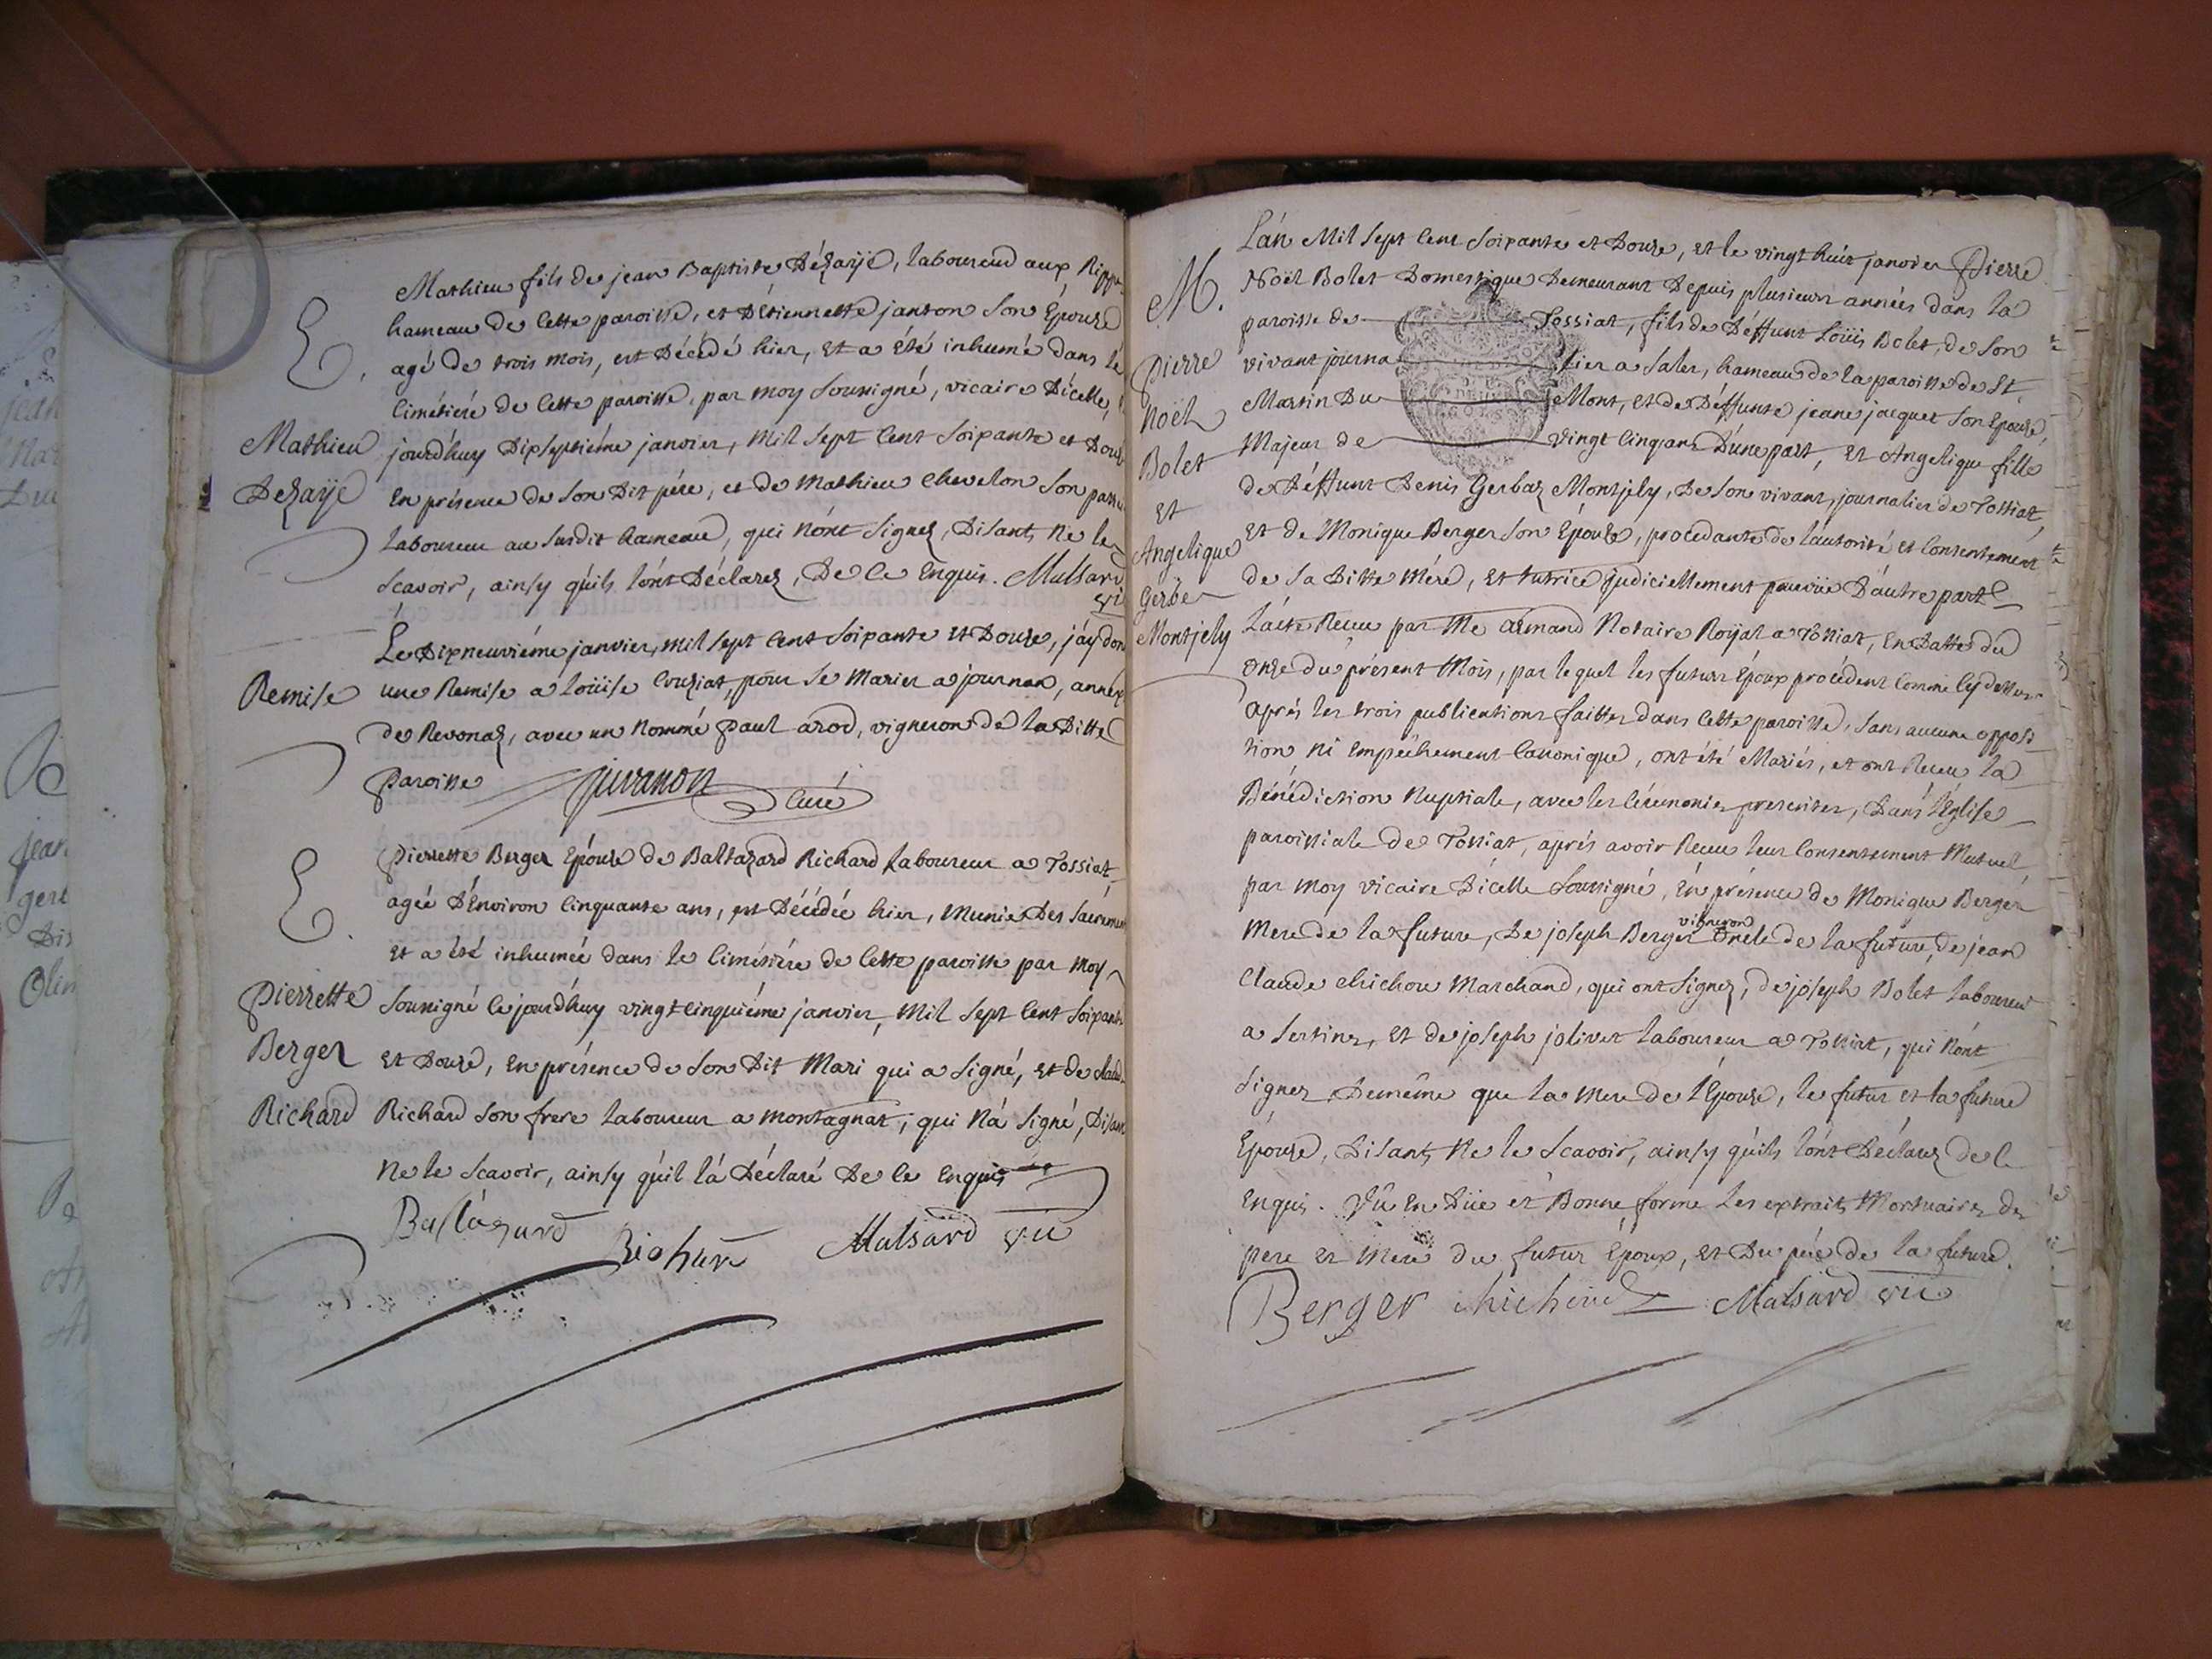 E.
Mathieu
Dezaÿe
Mathieu fils de jean Baptiste Dézaÿe, laboureur aux Rippe
hameau de cette paroisse, et D'étiennette janton Son Épouze
agé de trois mois, est Décédé hier, et a été inhumé dans le
Cimétiere de Cette paroisse, par moy Soussigné, vicaire D'icelle,
jourd'huy Dixseptiéme janvier, Mil Sept Cent Soixante et Douz
En présence de Son Dit pére, et de Mathieu Chevelon Son parr
laboureur au Susdit hameau, qui n'ont Signez, Disants Ne le
Scavoir, ainsy qu'ils l'ont Déclarez, De Ce Enquis. Mulsard
vi
Remise
Le Dixneuviéme janvier, mil sept Cent Soixante et Douze, j'ay don
une Remise a Loüise Couziat, pour Se Marier a journan, annex
de Revonaz, avec un Nommé Paul arod, vigneron de la Ditte
Paroisse Juvanon Curé
E.
Pierrette
Berger
Richard
Pierrette Berger Epouze de Baltazard Richard Laboureur a Tossiat
agée D'Environ Cinquante ans, est Décédée hier, Munie Des Sacremen
Et a été inhumée dans le Cimétiére de Cette paroisse par Moy
Soussigné Ce jourd'huy vingtcinquiéme janvier, Mil Sept Cent Soixante
Et Douze, En présence de Son Dit Mari qui a Signé, et de Claud
Richard Son frere Laboureur a Montagnat, qui N'a Signé, Disan
Ne le Scavoir, ainsy qu'il l'a Déclaré De Ce Enquis
Baltazard Richard Mulsard vic
M.
Pierre
Noël
Bolet
Et
Angelique
Gerbe
Montjely
L'an Mil Sept Cent Soixante et Douze, et le vingt huit janvier Pierre
Noël Bolet Domestique Demeurant Depuis plusieurs années dans la
paroisse de Tossiat, fils de Déffunt Loüis Bolet, de Son
vivant journa lier a Salet, hameau de la paroisse de St
Martin Du Mont, et de Déffunte jeane jacquet Son Epouze,
Majeur de vingt Cinq ans D'une part, Et Angelique fille
de Déffunt Denis Gerbaz Montjely, De Son vivant, journalier de Tossiat,
Et de Monique Berger Son Épouze, procedante de l'autorité et Consentement
de Sa Ditte Mére, et tutrice judiciellement pourvüe D'autre part
L'acte Receu par Me armand Notaire Royal a Tossiat, en Datte du
onze du présent Mois, par lequel les futurs Époux procédent Comme Cy dessus
après les trois publications faittes dans Cette paroisse, Sans aucune opposi
tion, ni Empéchement Canonique, ont été Mariés, et ont Receu la
Bénédiction Nuptiale, avec les Cérémonies prescrites, Dans l'Église
paroissiale de Tossiat, aprés avoir Receu leur Consentement Mutuel,
par Moy vicaire D'icelle Soussigné, En présence de Monique Berger
Mere de la future, De joseph Berger vigneron Oncle de la future, de jean
Claude Chichou Marchand, qui ont Signez, de joseph Bolet laboureur
a Sertines, et de joseph jolivet laboureur a Tossiat, qui N'ont
Signez Demême que la Mere de l'Épouze, le futur et la future
Épouze, Disants Ne le Scavoir, ainsy qu'ils l'ont Déclarez de Ce
Enquis. Vû En Düe et Bonne forme Les extraits Mortuaires des
pere et Mere du futur Époux, et Du pére de la future.
Berger Mulsard vic